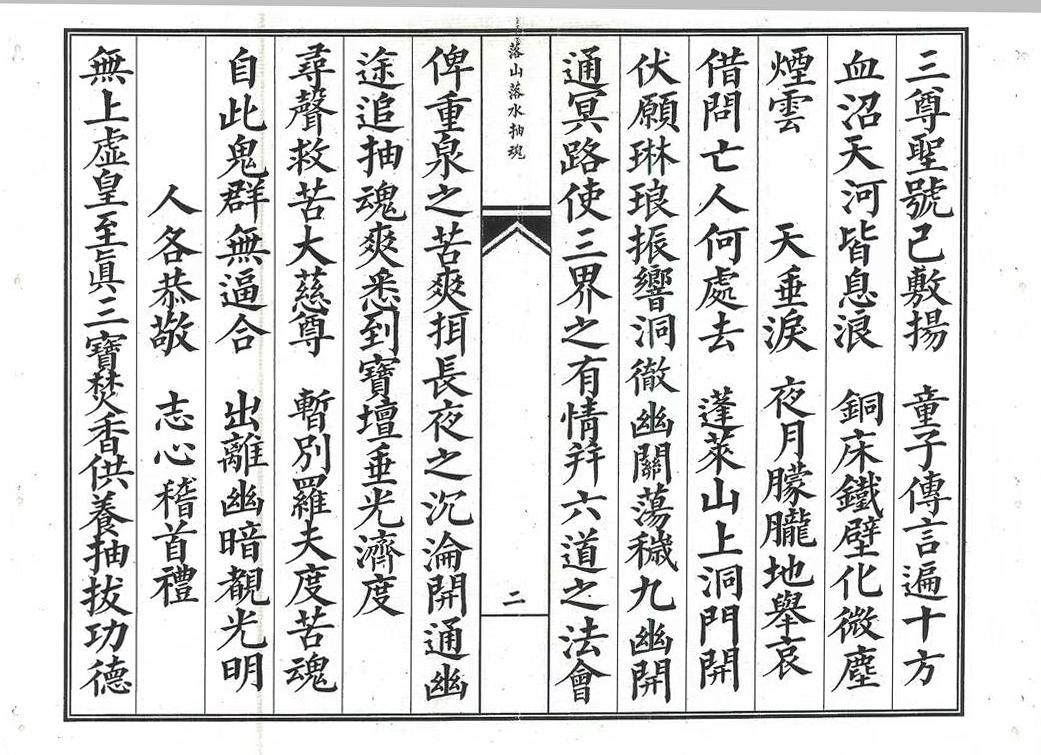 三尊聖號已敷揚　童子傳言遍十方
血沼天河皆息浪　銅床鐵壁化微塵
煙雲　天垂淚　夜月朦朧地舉哀
借問亡人何處去　蓬萊山上洞門開
伏願琳琅振響洞徹幽關蕩穢九幽開
通冥路使三界之有情并六道之法會
落山落水抽魂
二
俾重泉之苦爽抇長夜之沉淪開通幽
途追抽魂爽悉到寶壇垂光濟度
尋聲救苦大慈尊　暫別羅夫度苦魂
自此鬼群無逼合　出離幽暗覩光明
人各恭敬　志心稽首禮
無上虛皇至真三寶焚香供養抽拔功德